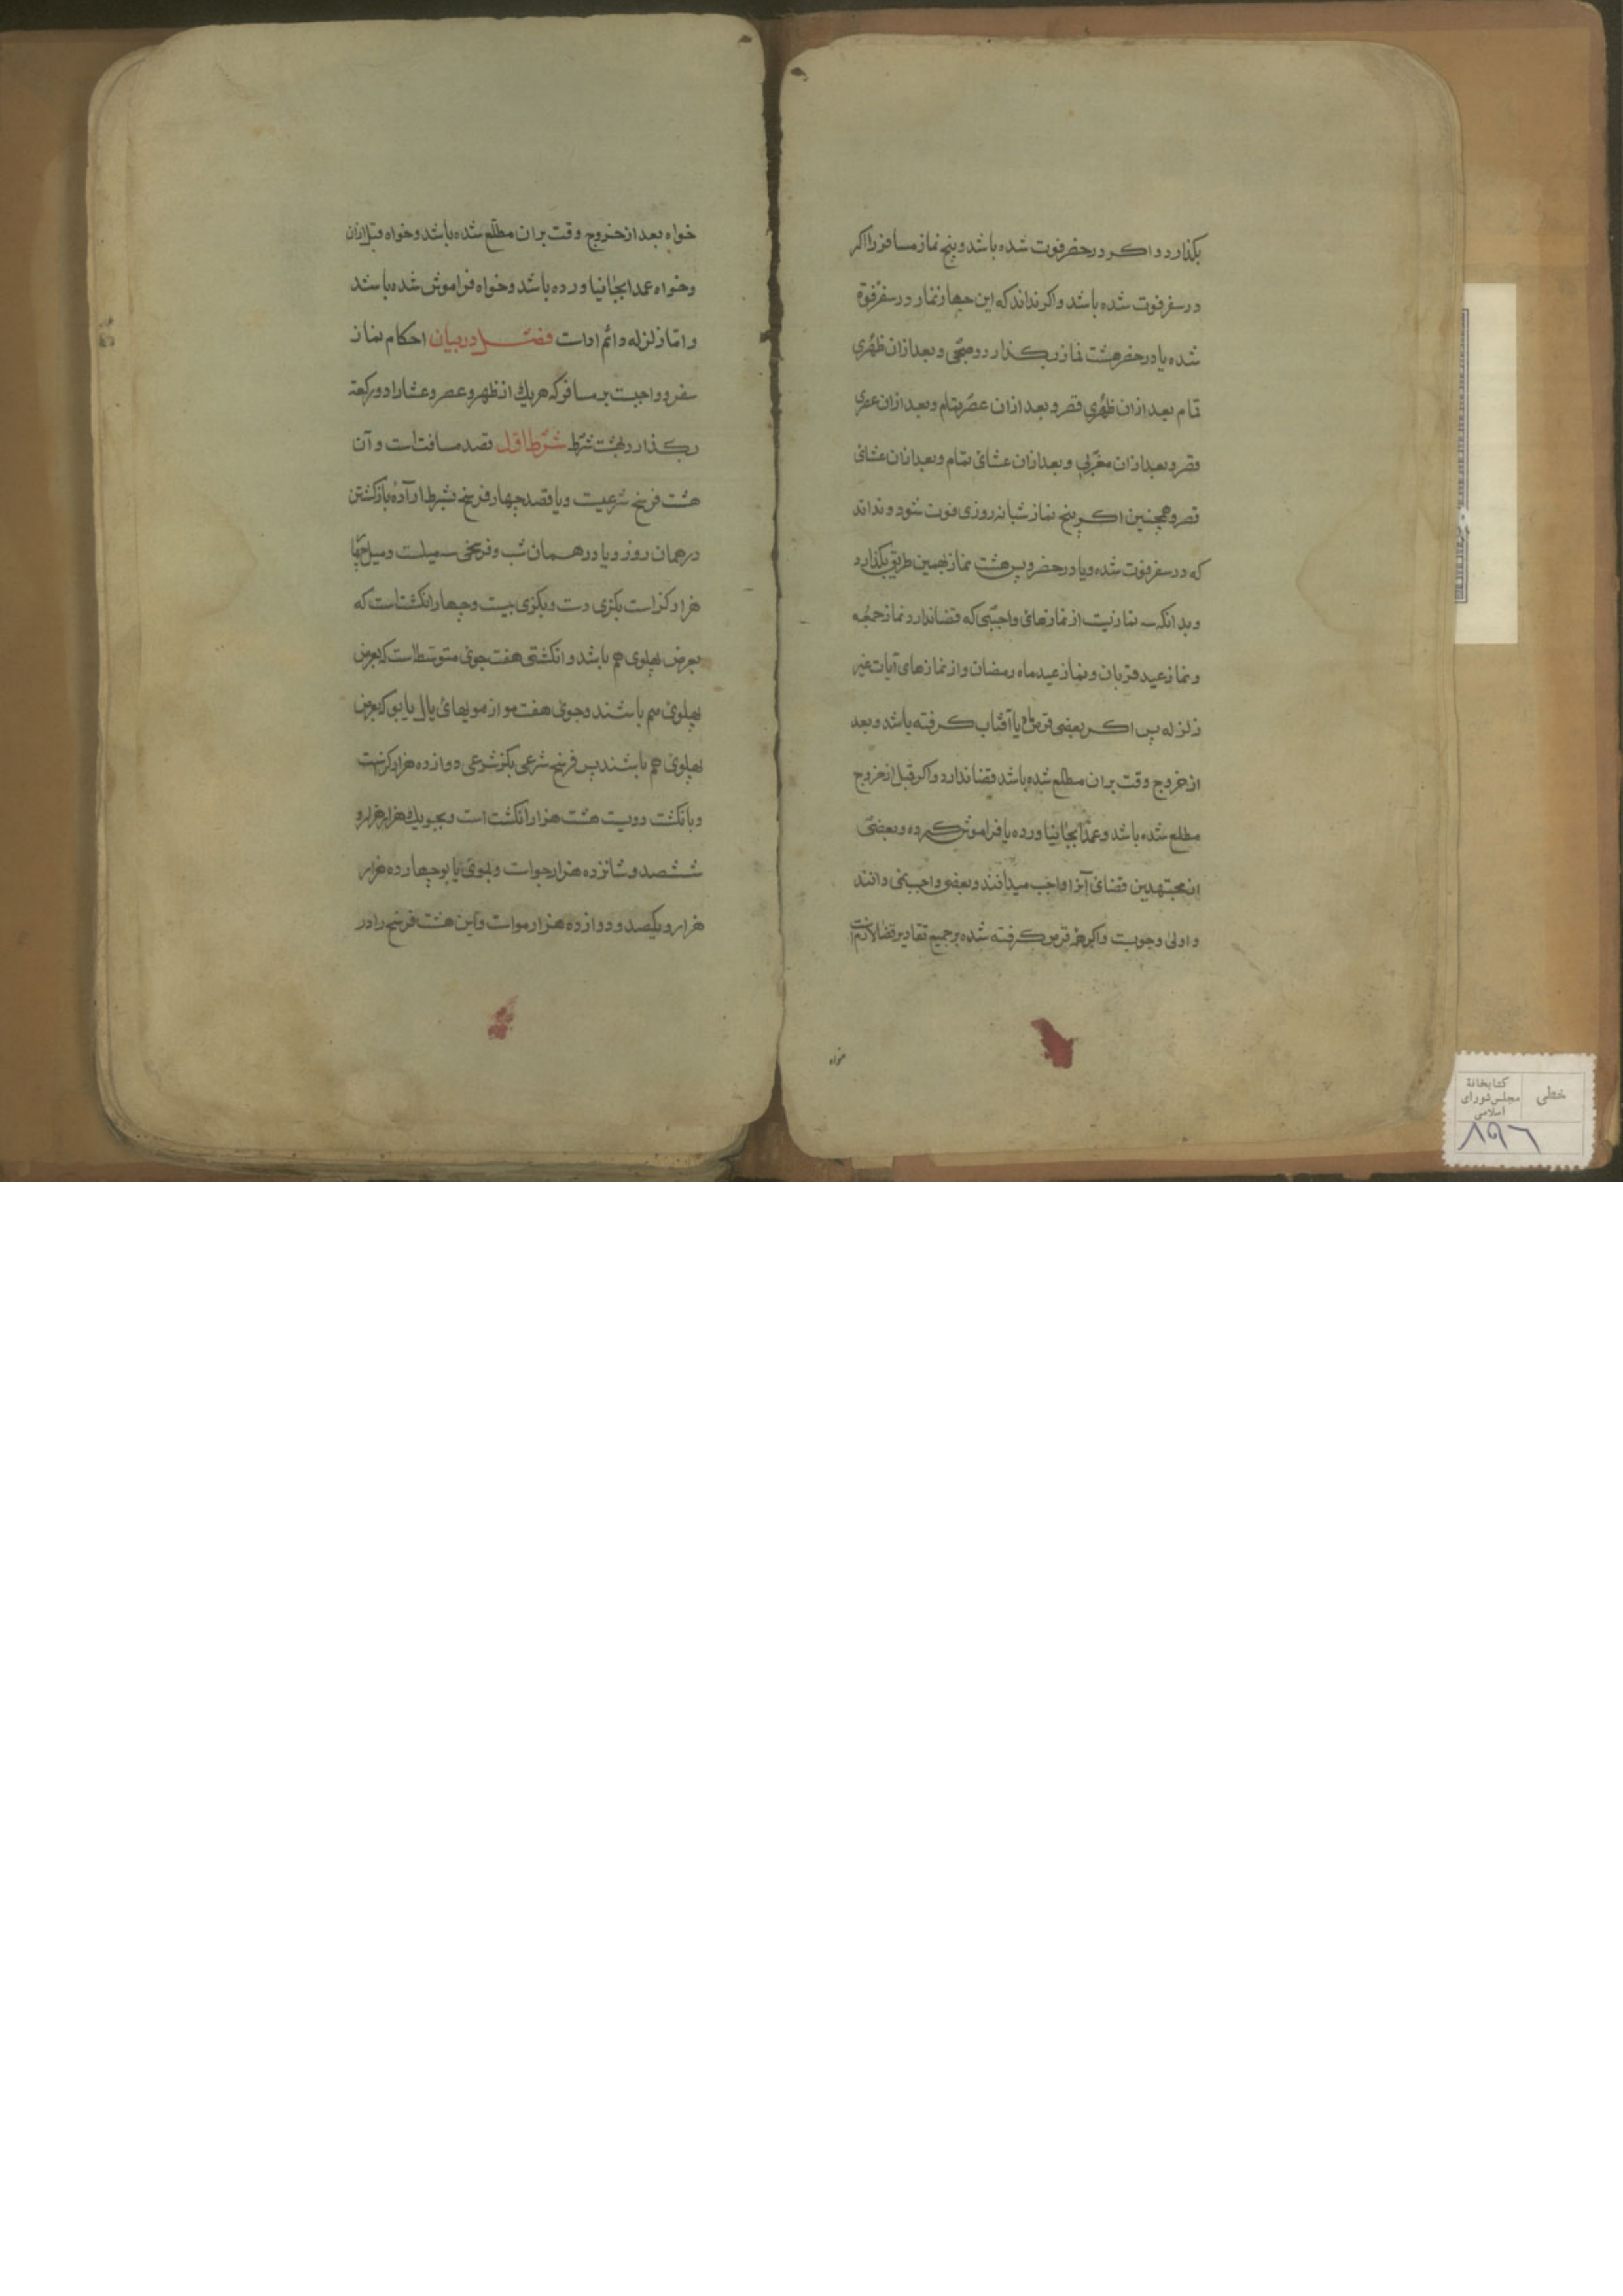 بکذارد و اکر در حضر فوت شده باشد و پنج نماز مسافر را اکر
در سفر فوت شده باشد و اکر نداند که این چهار نماز در سفر فوة
شده یا در حضر هشت نماز بکذارد و صبحی و بعد ازان ظهری
تمام بعد ازان ظهری قصر و بعد ازان عصر بتمام و بعد ازان عصری
قصر و بعد ازان مغربی و بعد ازان عشائی بتمام و بعد ازان عشائی
قصر و همچنین اکر پنج نماز شبانروزی فوت شود و نداند
که در سفر فوت شده و یا در حضر و پس هشت نماز بهمین طریق بکذارد
و بدانکه سه نماز نیت از نمازهای واجبی که قضا ندارد نماز جمعه
و نماز عید قربان و نماز عید ماه رمضان و از نمازهای آیات غیر
زلزله پس اکر بعضی قرص یا آفتاب کرفته باشد و بعد
از خروج وقت بران مطلع شده باشد قضا ندارد و اکر قبل از خروج
مطلع شده باشد و عمدا بجا نیاورده یا فراموش کرده و بعضی
از مجتهدین قضای آنرا واجب میدانند و بعضی واجب نمی دانند
و اولی وجوبست و اکر همه قرص کرفته شده بر جمیع تقادیر قضا لازم است
خواه
خواه بعد از خروج وقت بران مطلع شده باشد و خواه قبل ازان
و خواه عمدا بجا نیاورده باشد و خواه فراموش شده باشد
و اما زلزله دائم اداست فصل در بیان احکام نماز
سفر و واجبست بر مسافر که هر یك از ظهر و عصر و عشا را دو رکعة
بکذارد بهشت شرط شرط اول قصد مسافت است و آن
هشت فرسخ شرعیست و یا قصد چهار فرسخ بشرط ارادۀ بازکشتن
در همان روز و یا در همان شب و فرسخی سه میلست و میل چهار
هزار کز است بکزی دست و بکزی بیست و چهار انکشتاست که
بعرض پهلوی هم باشد و انکشتی هفت جوی متوسط است که بعرض
پهلوی هم باشند و جوی هفت مو از مویهای یال یابو که بعرض
پهلوی هم باشند پس فرسخ شرعی بکز شرعی دوازده هزار کزست
و بانکشت دویست هشت هزار انکشت است و بجو یك هزار هزار و
ششصد و شانزده هزار جوات و بموی یابو چهارده هزار
هزار و یکصد و دوازده هزار موات و این هشت فرسخ را در
خطی
کتابخانۀ
مجلس شورای
اسلامی
۸۹۶